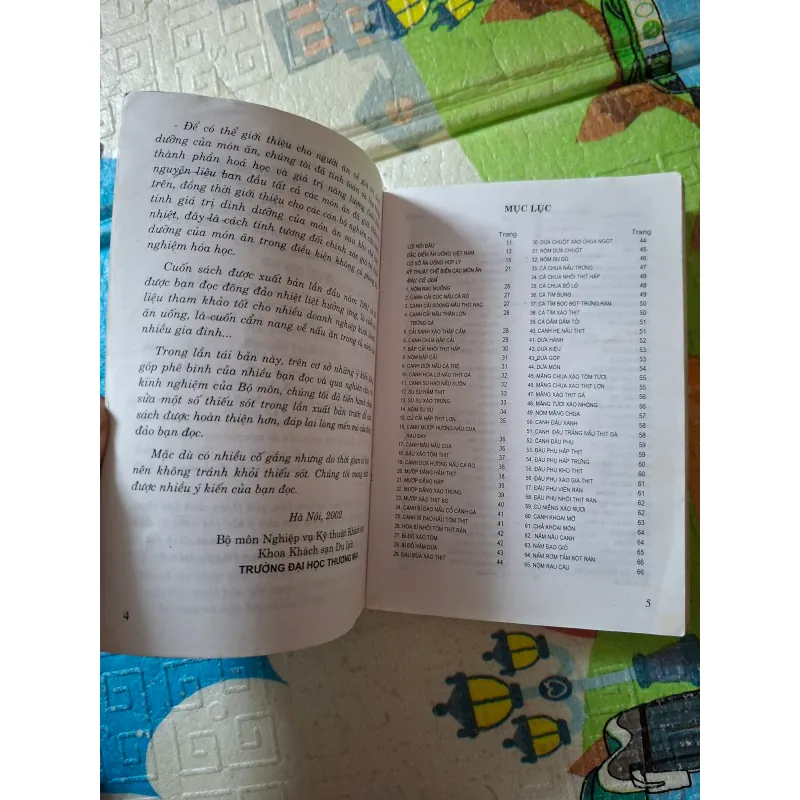 - Để có thể giới thiệu cho người ăn về giá trị
dưỡng của món ăn, chúng tôi đã tính toán
thành phần hoá học và giá trị năng lượng
nguyên liệu ban đầu tất cả các món ăn đã giới
trên, đồng thời giới thiệu cho các cán bộ nghiên cứu
tính giá trị dinh dưỡng của món ăn sau khi
nhiệt, đây là cách tính tương đối chính xác giá
dưỡng của món ăn trong điều kiện không có
nghiệm hóa học.
Cuốn sách được xuất bản lần đầu năm
được bạn đọc đông đảo nhiệt liệt hưởng ứng, là
liệu tham khảo tốt cho nhiều doanh nghiệp kinh doanh
ăn uống, là cuốn cẩm nang về nấu ăn trong
nhiều gia đình...
Trong lần tái bản này, trên cơ sở những ý kiến đóng
góp phê bình của nhiều bạn đọc và qua nghiên cứu
kinh nghiệm của Bộ môn, chúng tôi đã tiến hành
sửa một số thiếu sót trong lần xuất bản trước để
sách được hoàn thiện hơn, đáp lại lòng mến mộ của
đảo bạn đọc.
Mặc dù có nhiều cố gắng nhưng do thời gian có
nên không tránh khỏi thiếu sót. Chúng tôi mong
được nhiều ý kiến của bạn đọc.
Hà Nội, 2002
Bộ môn Nghiệp vụ Kỹ thuật Khách sạn
Khoa Khách sạn Du lịch
TRƯỜNG ĐẠI HỌC THƯƠNG MẠI
4
MỤC LỤC
Trang
LỜI NÓI ĐẦU 11
ĐẶC ĐIỂM ĂN UỐNG VIỆT NAM 13
CƠ SỞ ĂN UỐNG HỢP LÝ 15
KỸ THUẬT CHẾ BIẾN CÁC MÓN ĂN 21
RAU, CỦ, QUẢ
1. NỘM RAU MUỐNG 26
2. CANH CẢI CÚC NẤU CÁ RÔ 27
3. CANH CẢI SOONG NẤU THỊT NẠC
4. CANH CẢI NẤU THĂN LỢN
TRỨNG GÀ
5. CẢI XANH XÀO THẬP CẨM 28
6. CANH CHUA BẮP CẢI 29
7. BẮP CẢI NHỒI THỊT HẤP
8. NỘM BẮP CẢI
9. CANH DƯA NẤU CÁ TRÊ
10. CANH HOA LÝ NẤU THỊT GÀ
11. CANH SU HÀO NẤU SƯỜN
12. SU SU HẦM THỊT
13. SU SU XÀO TRỨNG
14. NỘM SU SU 34
15. CỦ CẢI HẤP THỊT LỢN 35
16. CANH MƯỚP HƯƠNG NẤU CUA
RAU ĐAY 36
17. CANH BẦU NẤU CUA 36
18. BẦU XÀO TÔM THỊT 38
19. CANH DƯA HƯỜNG NẤU CÁ RÔ 38
20. MƯỚP ĐẮNG HẦM THỊT 38
21. MƯỚP ĐẮNG HẤP 39
22. MƯỚP ĐẮNG XÀO TRỨNG 39
23. MƯỚP XÀO THỊT BÒ 40
24. CANH BÍ ĐAO NẤU CỔ CÁNH GÀ 41
25. CANH BÍ ĐAO NẤU TÔM THỊT 41
26. HOA BÍ NHỒI TÔM THỊT RÁN 41
27. BÍ ĐỎ XÀO TÔM 42
28. BÍ ĐỎ HẦM DỪA 43
29. ĐẬU ĐŨA XÀO THỊT 44
Trang
30. DƯA CHUỘT XÀO CHUA NGỌT 44
31. NỘM DƯA CHUỘT 45
32. NỘM ĐU ĐỦ 46
33. CÀ CHUA NẤU TRỨNG 47
34. CÀ CHUA NHỒI THỊT HẤP
35. CÀ CHUA BỎ LÒ
36. CÀ TÍM BUNG 50
37. CÀ TÍM BỌC BỘT TRỨNG RÁN 50
38. CÀ TÍM XÀO THỊT 50
39. CÀ DẦM DẤM TỎI 51
40. CANH HẸ NẤU THỊT 51
41. DƯA HÀNH 52
42. DƯA KIỆU 53
43. DƯA GÓP 54
44. DƯA MÓN 54
45. MĂNG CHUA XÀO TÔM TƯƠI 55
46. MĂNG CHUA XÀO THỊT LỢN 55
47. MĂNG XÀO THỊT GÀ 56
48. MĂNG TƯƠI XÀO NHỘNG 56
49. NỘM MĂNG CHUA 57
50. CANH ĐẬU XANH 58
51. CANH ĐẬU TRẮNG NẤU THỊT GÀ 58
52. CANH ĐẬU PHỤ 59
53. ĐẬU PHỤ HẤP THỊT 59
54. ĐẬU PHỤ HẤP TRỨNG 60
55. ĐẬU PHỤ KHO THỊT 60
56. ĐẬU PHỤ XÀO GIÁ THỊT 61
57. ĐẬU PHỤ VIÊN RÁN 61
58. ĐẬU PHỤ NHỒI THỊT RÁN 62
59. CỦ NIỄNG XÀO RƯƠI 62
60. CANH KHOAI MỠ
61. CHẢ KHOAI MÔN
62. NẤM NẤU CANH 64
63. NẤM BAO GIÒ 64
64. NẤM RƠM TẨM BỘT RÁN 66
65. NỘM RAU CÂU 66
5